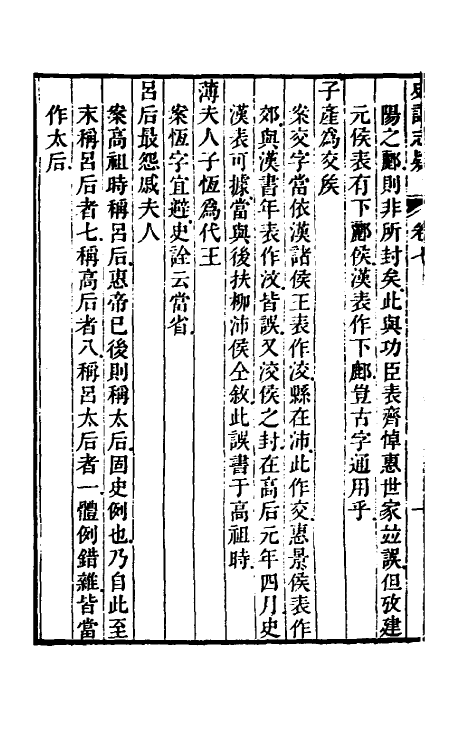 史記志疑 卷七
陽之酈則非所封矣此與功臣表齊悼惠世家並誤但攷建
元侯表有下酈侯漢表作下鄜豈古字通用乎
子產為交矦
案交字當依漢諸侯王表作洨縣在沛此作交惠景侯表作
郊與漢書年表作汶皆誤又洨侯之封在高后元年四月史
漢表可據當與後扶柳沛侯仝敘此誤書于高祖時
薄夫人子恆為代王
案恆字宜避史詮云當省
呂后最怨戚夫人
案高祖時稱呂后惠帝已後則稱太后固史例也乃自此至
末稱呂后者七稱高后者八稱呂太后者一體例錯雜皆當
作太后